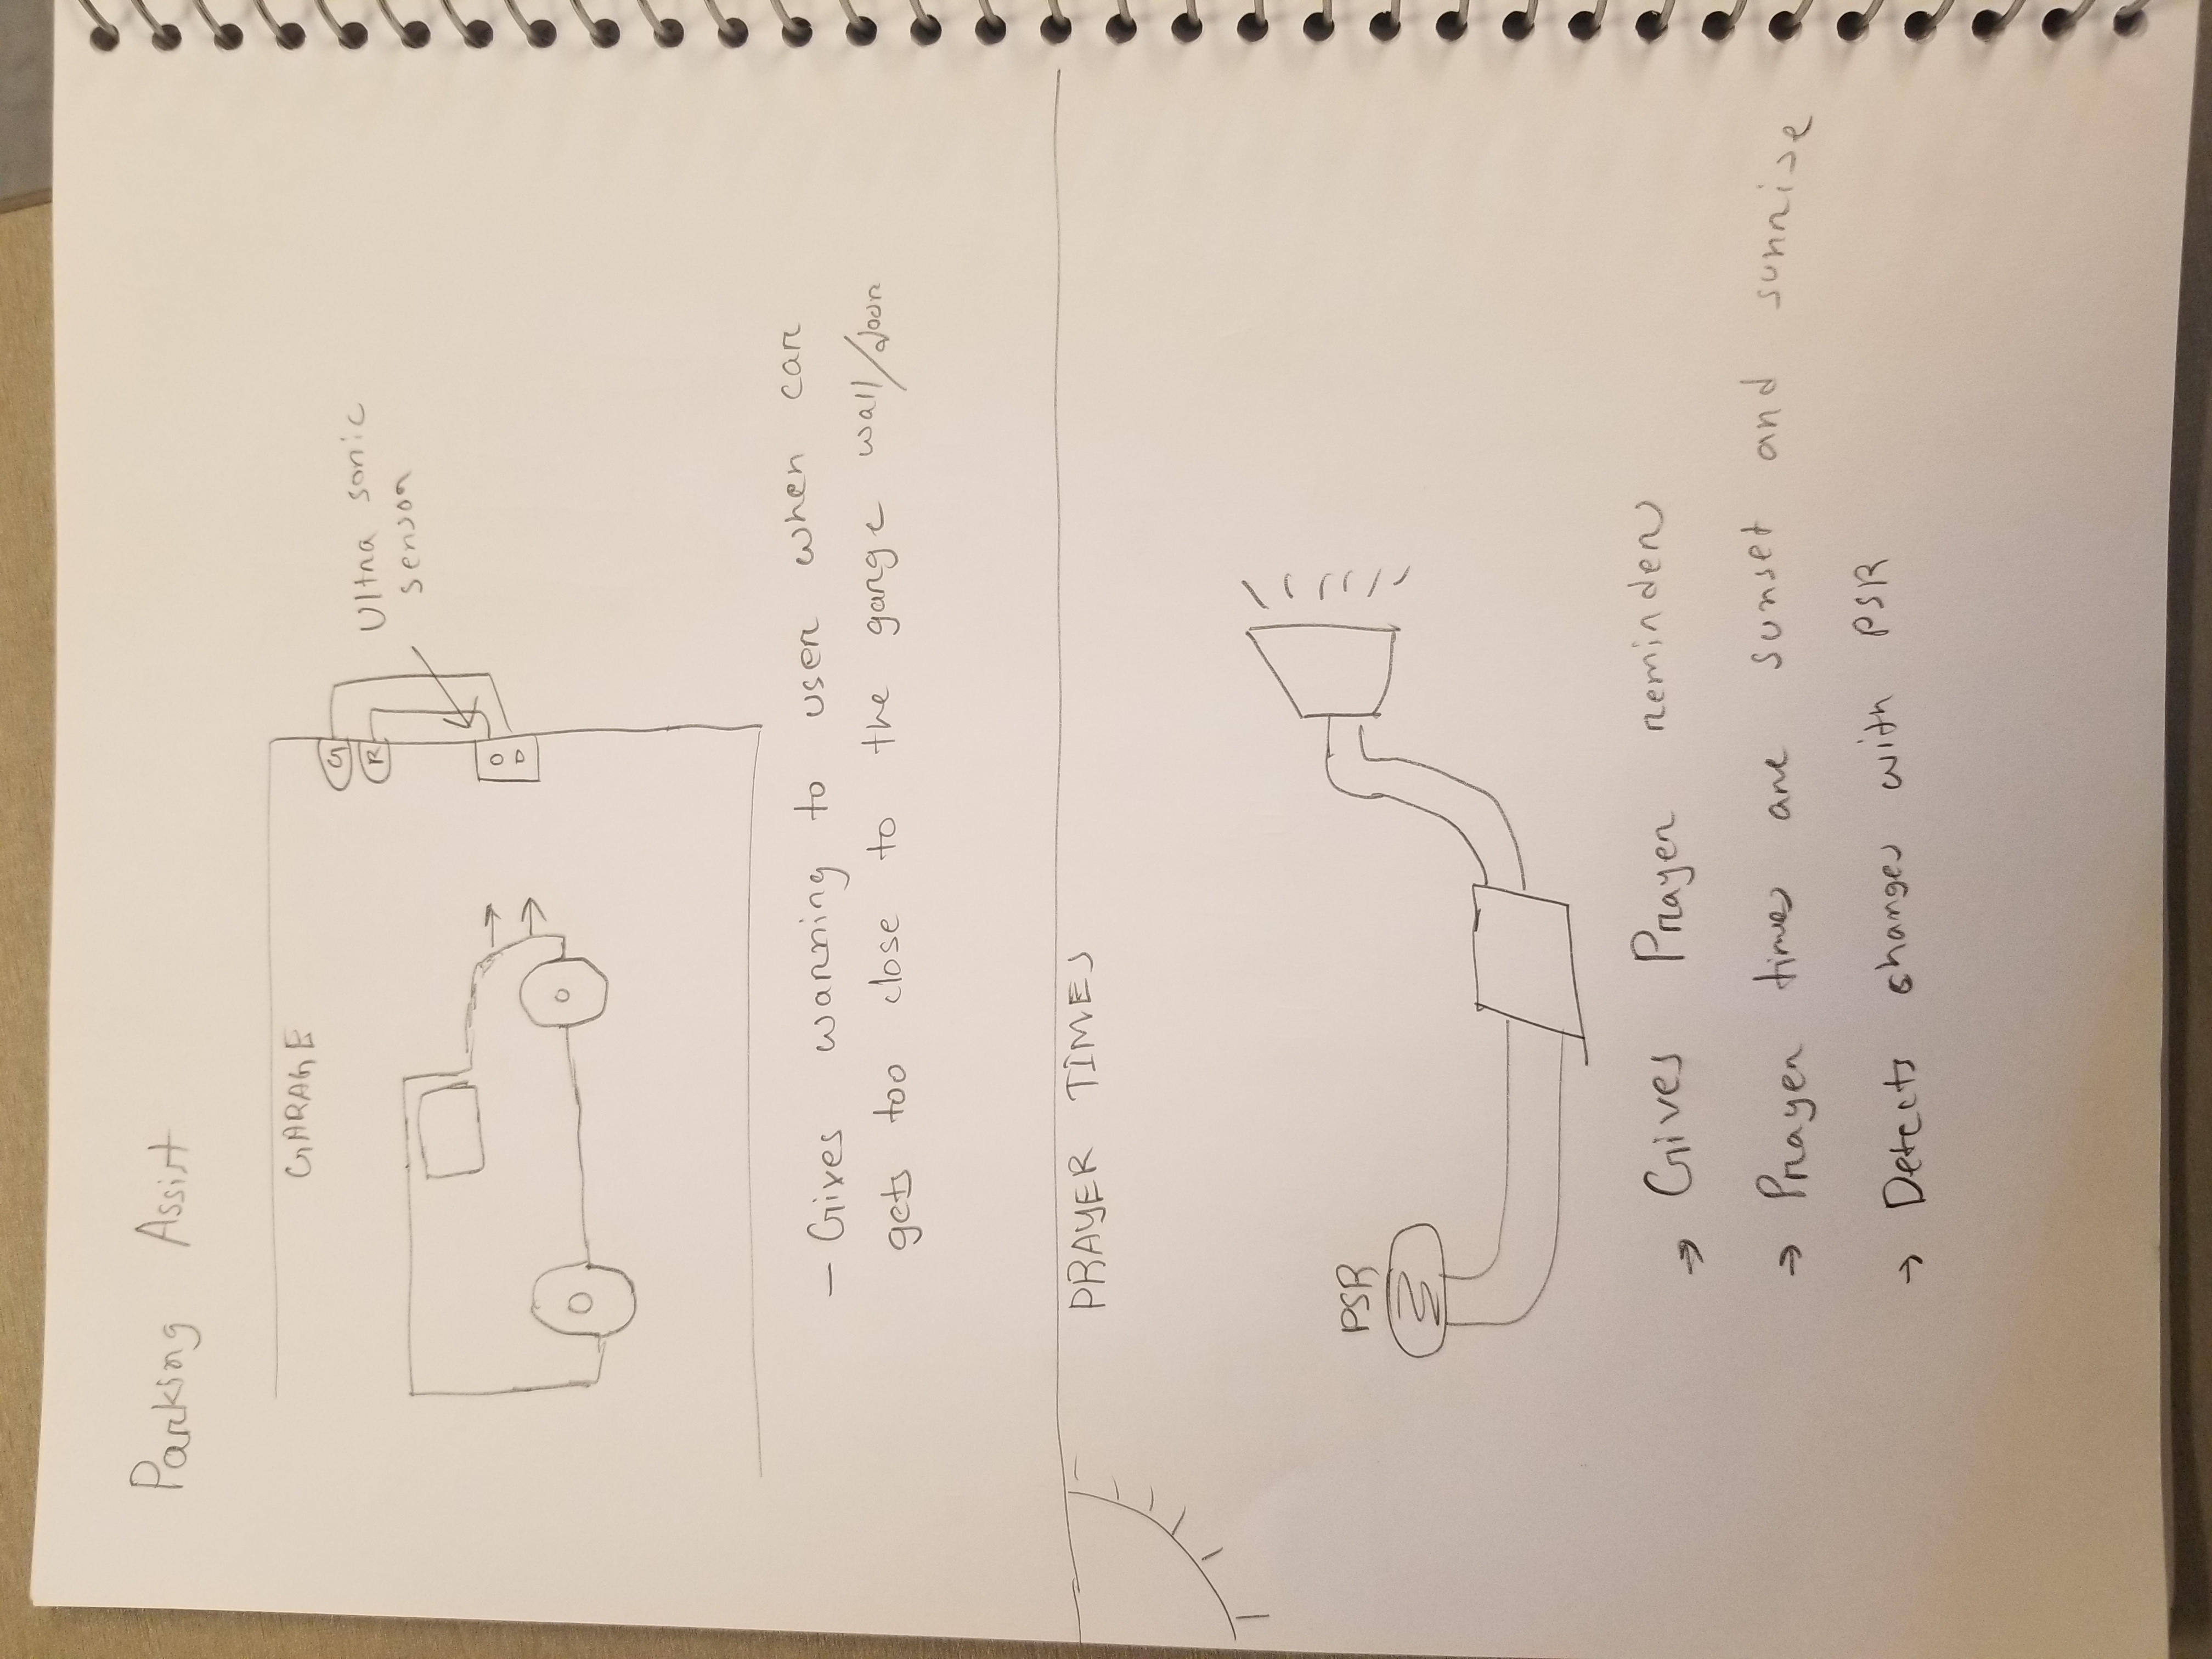 Parking Assist
GARAGE
G
R
Ultra sonic
sensor
- Gives warning to user when car
gets too close to the garge wall/door
PRAYER TIMES
PSR
→ Gives Prayer reminders
→ Prayer times are sunset and sunrise
→ Detects changes with PSR